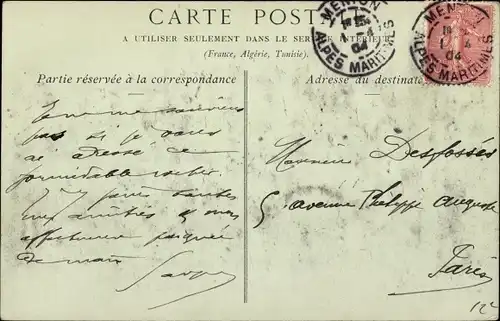 CARTE POSTALE
A UTILISER SEULEMENT DANS LE SERVICE INTÉRIEUR
(France, Algérie, Tunisie).
Partie réservée à la correspondance
Adresse du destinataire
MENTON
1 - 4
04
ALPES MARITIMES
MENTON
1 4
04
ALPES MARITIMES
Je ne me souviens
pas si je vous
ai adressé ce
formidable
J'y joins toutes
mes amitiés & mon
affectueuse poignée
de main
Monsieur Desfossés
5 avenue Philippe Auguste
Paris